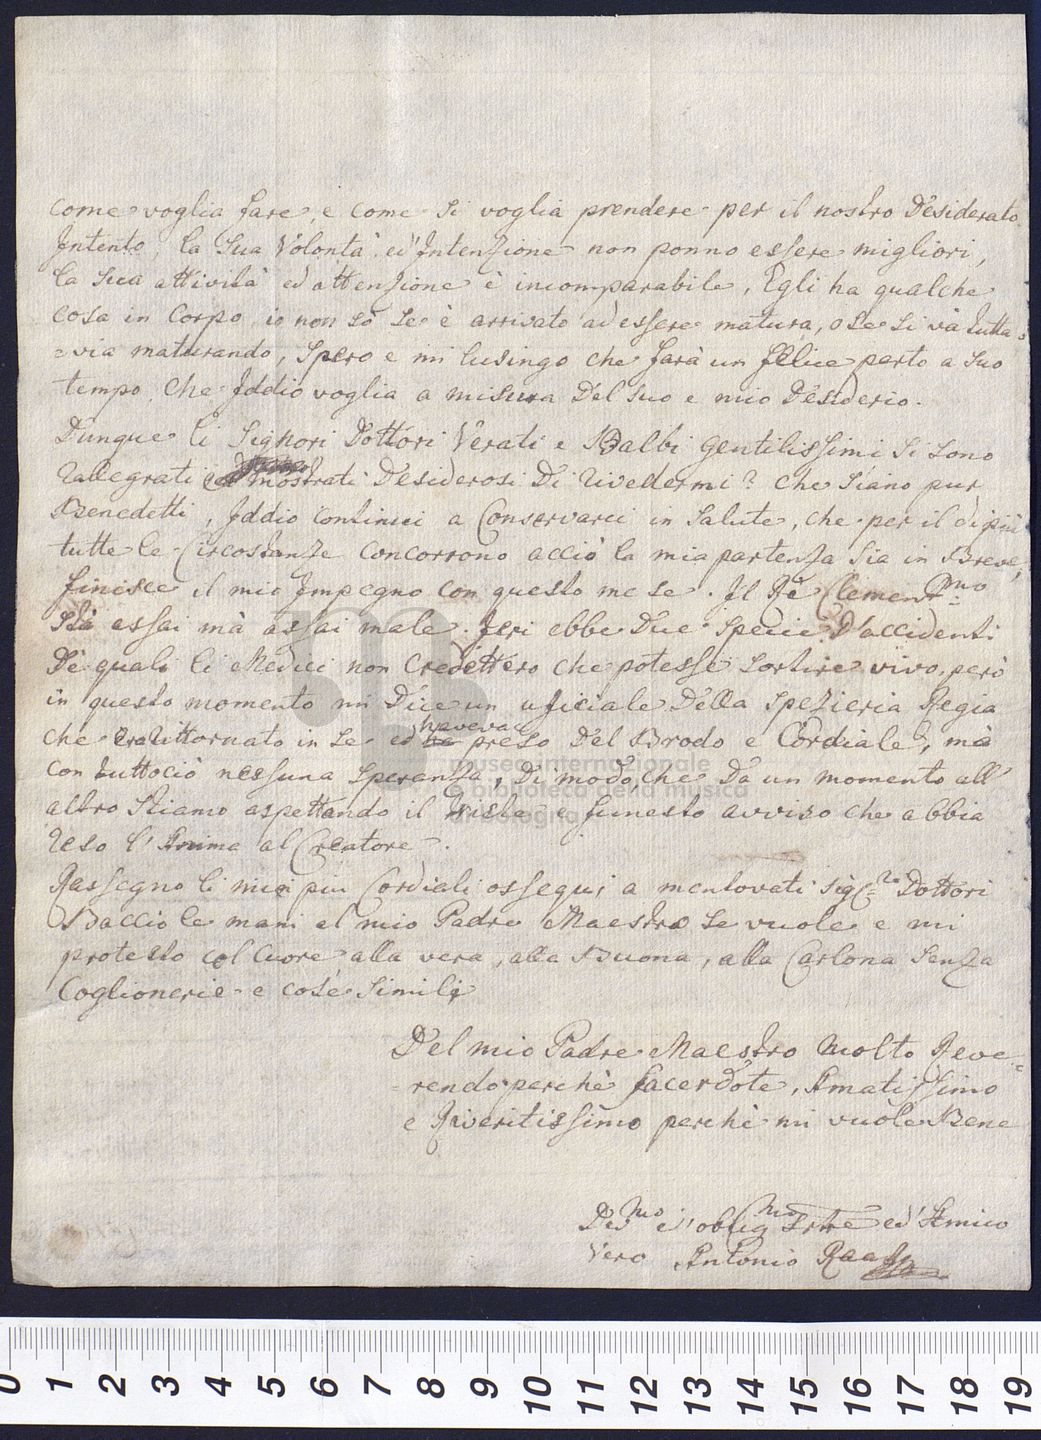 come voglia fare, e come si voglia prendere per il nostro Desiderato
Intento, la Sua Volontà ed' Intenzione non ponno essere migliori,
la Sua attività ed attenzione è incomparabile, Egli ha qualche
cosa in Corpo, io non sò se è arrivato ad essere matura, o se si và tutta =
= via maturando, Spero e mi lusingo che farà un felice parto a Suo
tempo, che Iddio voglia a misura Del Suo e mio Desiderio.
Dunque li Signori Dottori Verati e Balbi gentilissimi Si Sono
rallegrati e mostrati Desiderosi Di rivedermi? che Siano pur
Benedetti, Iddio continui a Conservarci in Salute, che per il di più
tutte le Circostanze concorrono acciò la mia partenza Sia in Breve,
finisce il mio Impegno con questo mese. Il Rè Clement.mo
Stà assai mà assai male. Ieri ebbe Due Specie D'accidenti
De quali li Medici non Credettero che potesse Sortire vivo, però
in questo momento mi Dice un uficiale Della Spezieria Regia
che era rittornato in Se ed haveva preso Del Brodo e Cordiale, mà
con tuttociò nessuna Speranza, Di modo che Da un momento all'
altro Stiamo aspettando il triste e funesto avviso che abbia
reso l'Anima al Creatore.
Rassegno li miei piu Cordiali ossequi a mentovati Sig.ri Dottori
Baccio le mani al mio Padre Maestro Se vuole e mi
protesto col Cuore alla vera, alla Buona, alla Carlona Senza
Coglionerie e cose Simili
Del mio Padre Maestro Molto Reve =
= rendo perchè Sacerdote, Amatissimo
e Riveritissimo perchè mi vuole Bene
Dev.mo ed' oblig.mo Ser.re ed' Amico
Vero Antonio Raaff
museo internazionale
e biblioteca della musica
di bologna
0 1 2 3 4 5 6 7 8 9 10 11 12 13 14 15 16 17 18 19